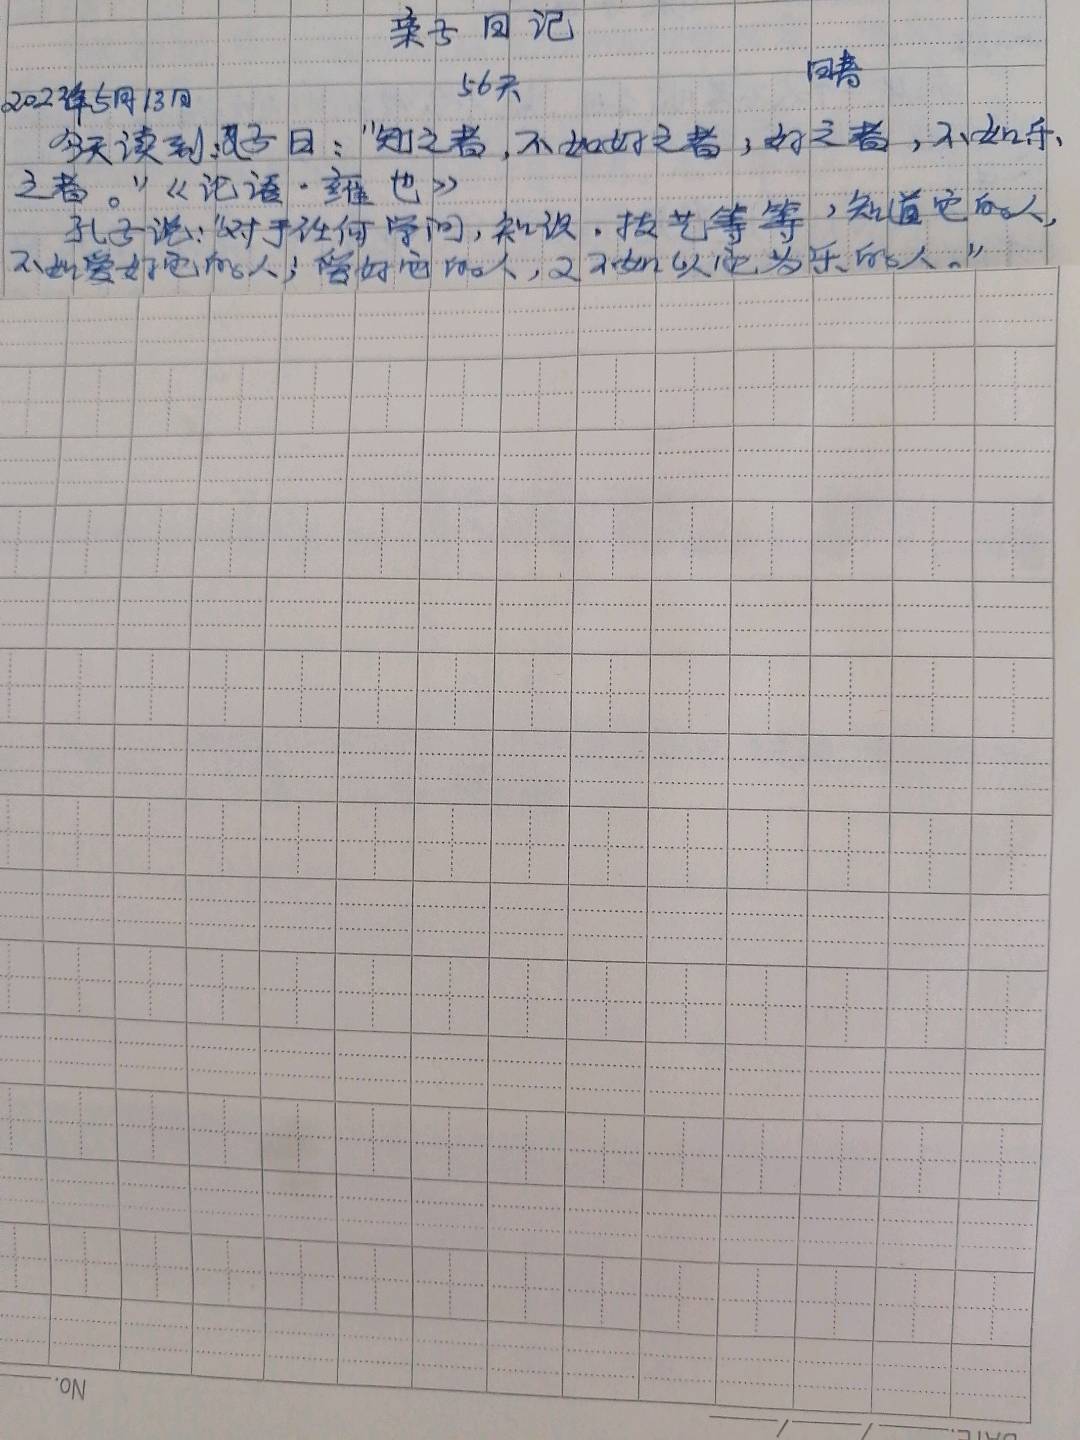 亲子日记
2023年5月13日 56天
今天读到:孔子曰："知之者,不如好之者,好之者,不如乐
之者。"《论语·雍也》
孔子说:"对于任何学问,知识,技艺等等,知道它的人,
不如爱好它的人;爱好它的人,又不如以它为乐的人。"
NO.
DATE.